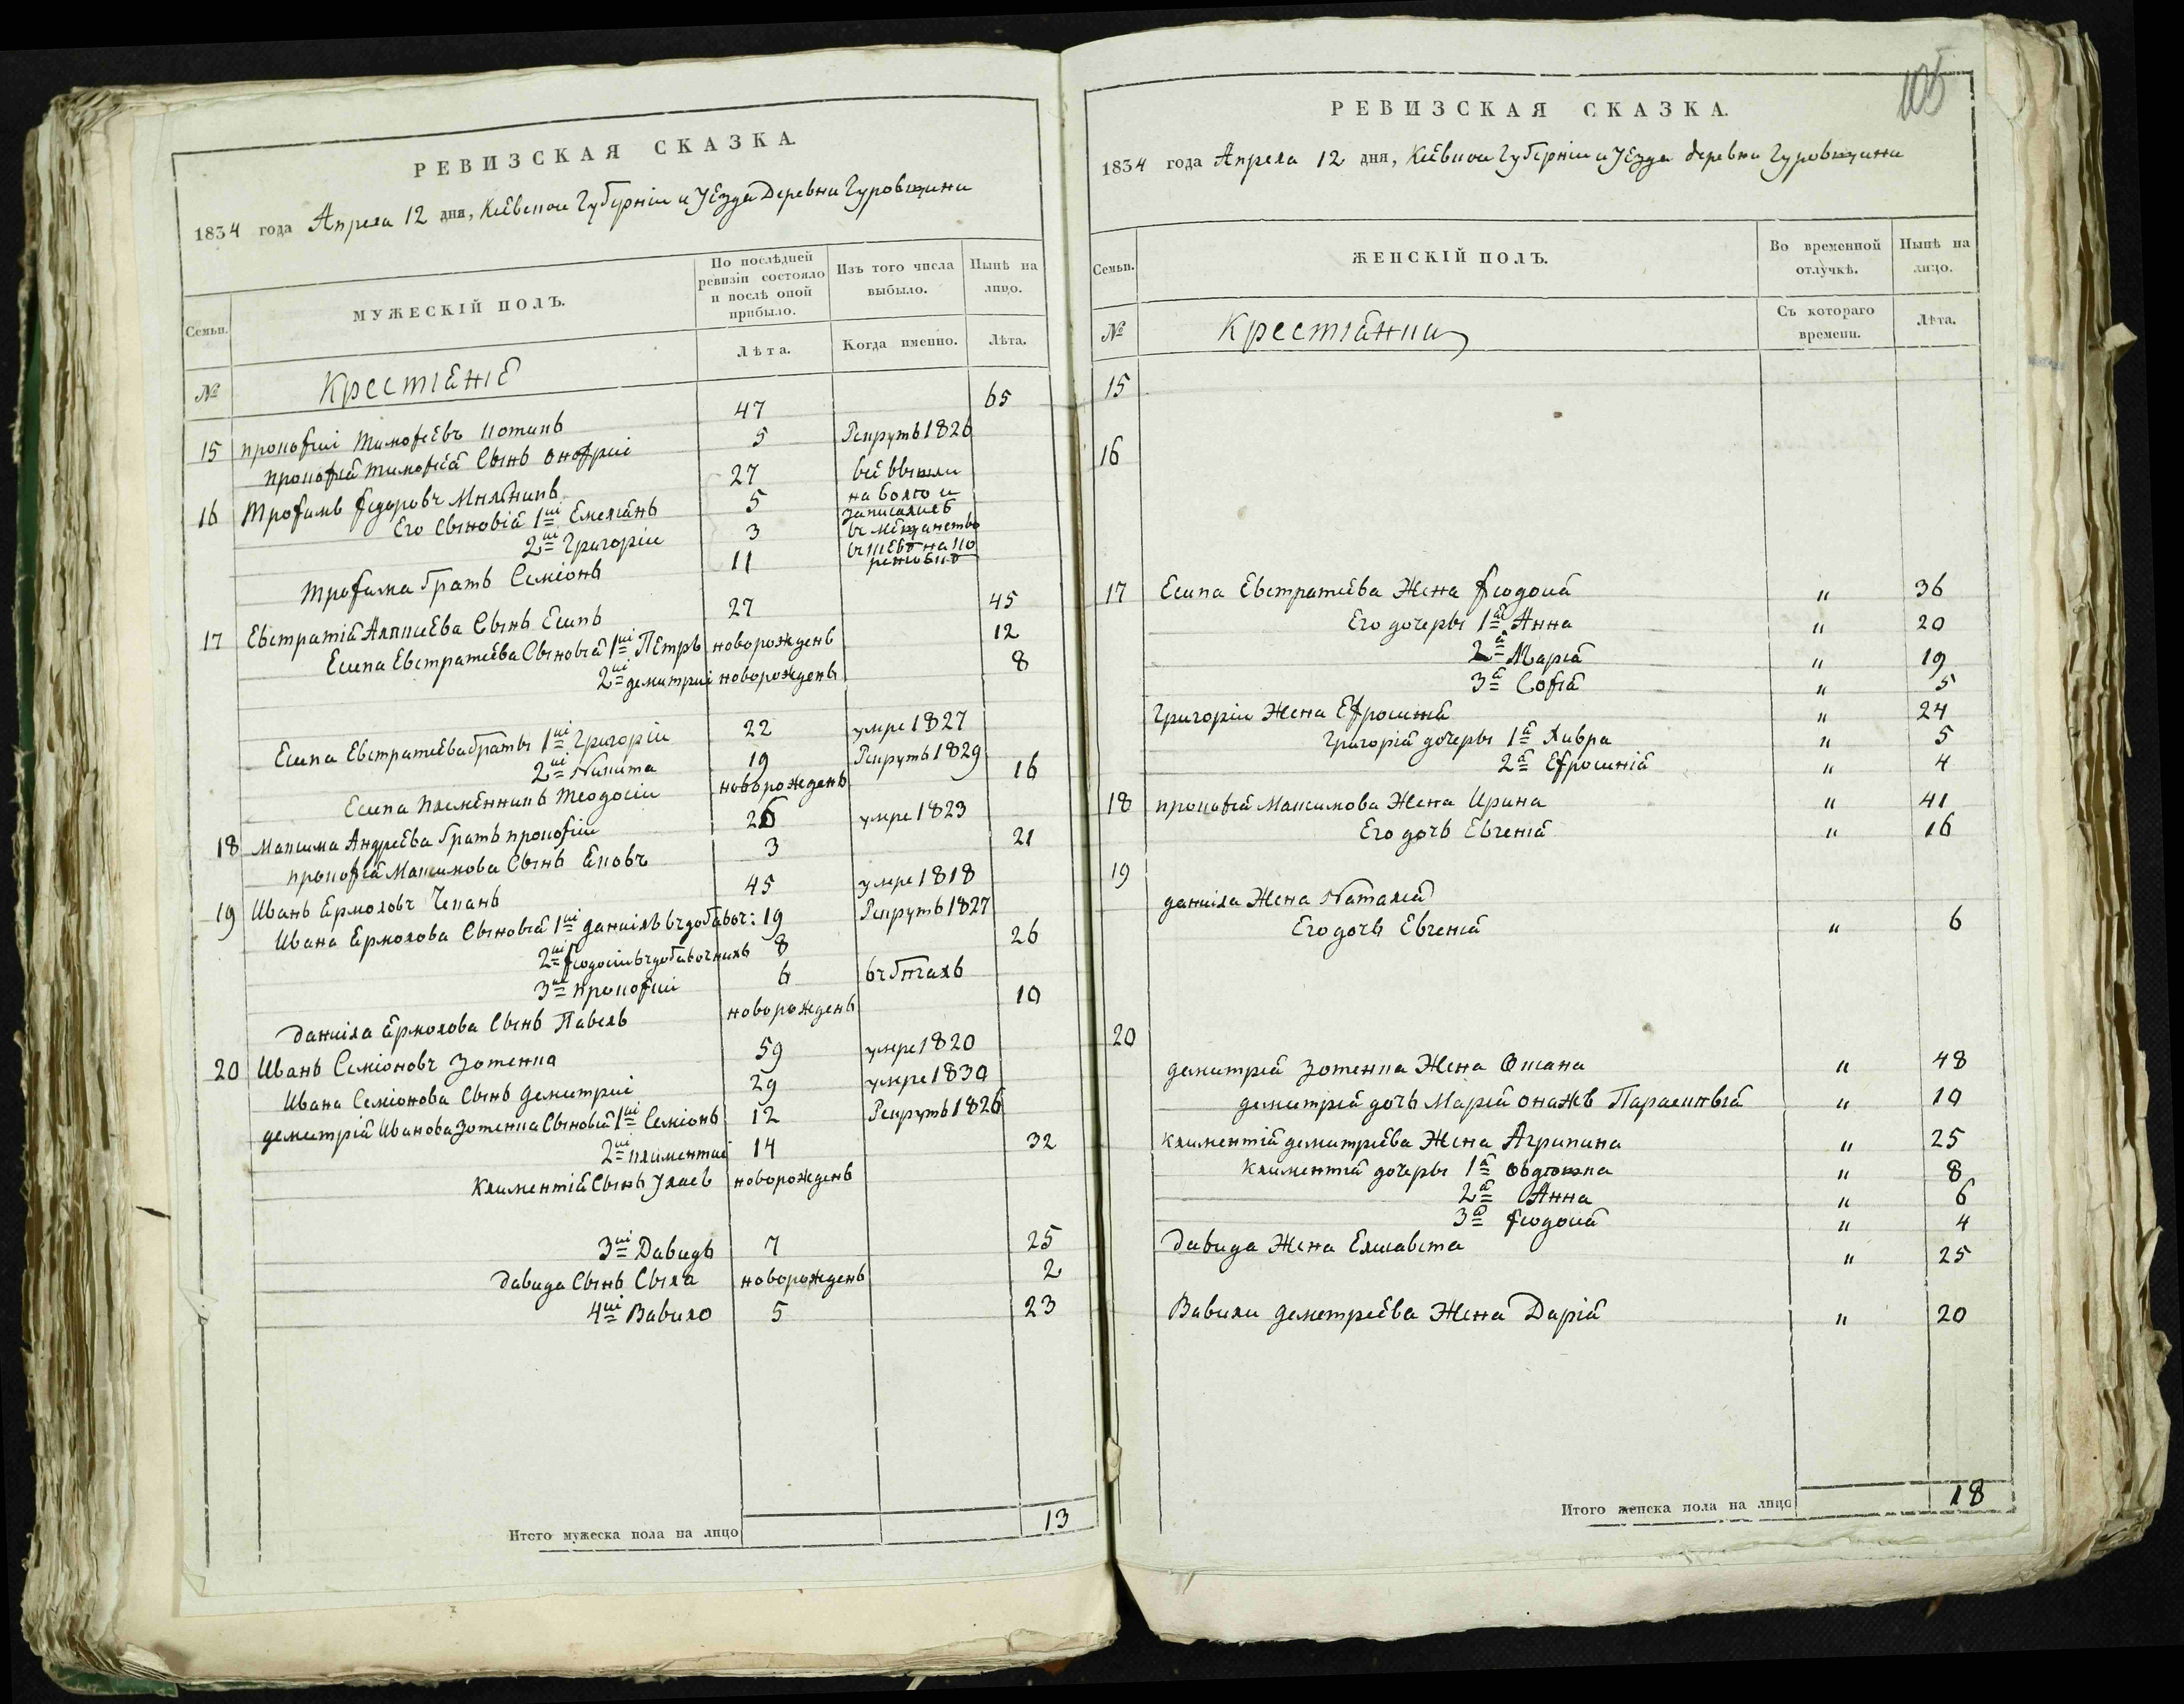 РЕВИЗСКАЯ СКАЗКА.
1834 года Апреля 12 дня, Кіевской Губерніи и Уезда Деревни Гуровщини
Семьи.
МУЖЕСКІЙ ПОЛЪ.
По послѣдней ревизіи состояло и послѣ оной прибыло.
Изъ того числа выбыло.
Нынѣ на лицо.
Лѣта.
Когда именно.
Лѣта.
№ Крестіяне
15 Прокофій Тимофеевъ 47 65
Прокофія Тимофея Сынъ Онофрій 5 Рекрутъ 1826
16 Трофимъ Федоровъ 27 всѣ вышли
Его Сыновія 1й Емеліянъ 5 на волю и записались
2й Григорій 3 въ мещанство
Трофима братъ Семіонъ 11
17 Евстратія Сынъ Есипъ 27 45
Есипа Евстратиева Сыновія 1й Петръ новорожденъ 12
2й демитрий новорожденъ 8
Есипа Евстратиева братьі 1й Григорій 22 умре 1827
2й Никита 19 Рекрутъ 1829
Есипа племѣнникъ Теодосій новорожденъ 16
18 Максима Андреева братъ прокофій 26 умре 1823
прокофія Максимова Сынъ Яковъ 3 21
19 Иванъ Ермоловъ Чепакъ 45 умре 1818
Ивана Ермолова Сыновія 1й даниілъ въ добавоч: 19 Рекрутъ 1827
2й Феодосій въ добавочнихъ 8 26
3й прокофій 6 въ бегахъ
Даниіла Ермолова Сынъ Павелъ новорожденъ 10
20 Иванъ Семіоновъ Зотенка 59 умре 1820
Ивана Семіонова Сынъ Демитрий 29 умре 1830
демитрія Иванова Зотенка Сыновія 1й Семіонъ 12 Рекрутъ 1826
2й климентий 14 32
Климентія Сынъ новорожденъ
3й Давидъ 7 25
Давида Сынъ Сыла новорожденъ 2
4й Вавило 5 23
Итого мужеска пола на лицо 13
105
РЕВИЗСКАЯ СКАЗКА.
1834 года Апреля 12 дня, Кіевской Губерніи и Уезда деревни Гуровщини
Семьи.
ЖЕНСКІЙ ПОЛЪ.
Во временной отлучкѣ.
Нынѣ на лицо.
Съ котораго времени.
Лѣта.
№ Крестіянки
15
16
17 Есипа Евстратиева Жена Феодосія " 36
Его дочеры 1я Анна " 20
2я Марія " 19
3я Софія " 5
Григорія Жена Ефросинія " 24
Григорія дочеры 1я Хивра " 5
2я Ефросинія " 4
18 прокофія Максимова Жена Ирина " 41
Его дочъ Евгенія " 16
19
даниіла Жена Наталія
Его дочъ Евгенія " 6
20
демитрія Зотенка Жена Оксана " 48
демитрія дочъ Марія онажъ Параскивія " 19
климентія демитриева Жена Агрипина " 25
Климентія дочеры 1я Овдотка " 8
2я Анна " 6
3я Феодосія " 4
Давида Жена Елисавета " 25
Вавили деметриева Жена Дарія " 20
Итого женска пола на лицо 18